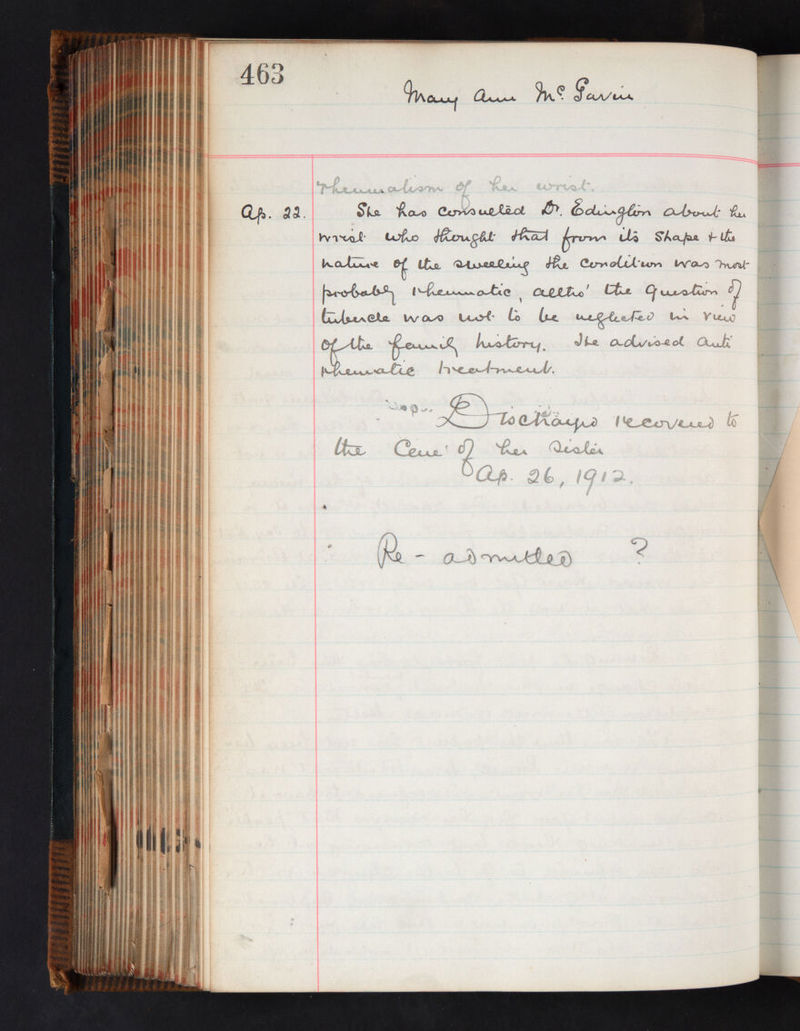 463
Mary Ann McGavin
rheumatism of her wrist.
Ap. 22. She has consulted Dr. Edington about her
wrist who thought that from its shape + the
nature of the swelling the condition was most
probably rheumatic, altho' the question of
tubercle was not to be neglected in view
of the family history. She advised anti
rhematic treatment.
Discharged recovered to
the Care of her sister
Ap. 26, 1912.
Re-admitted ?